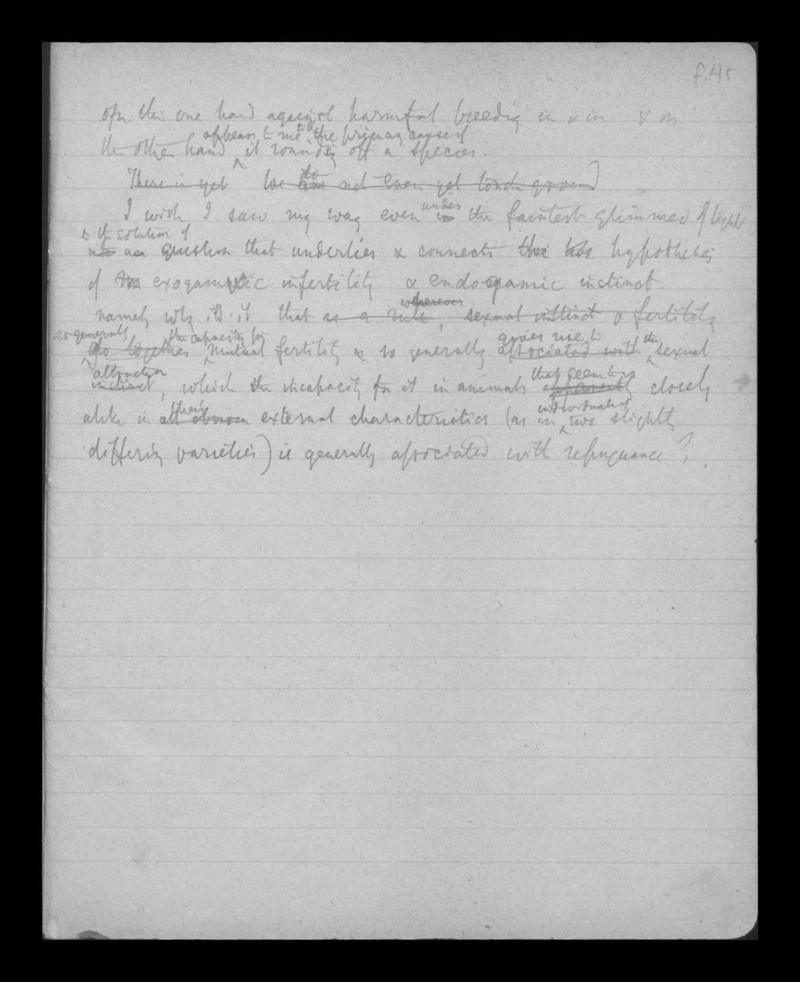 f.4r
on the one hand against harmful breeding in & in & on
appears to me to be the primary cause of
the other hand it rounding off a species.
There is yet We are do not even yet touch ground
I wish I saw my way even in under the faintest glimmer of light
to the solution of
a question that underlies & connects the two hypotheses
of exogamic infertility & endogamic instinct
namely why is it that as a rule, whenever sexual instinct & fertility
so generally the capacity for gives rise to the
go together mutual fertility is so generally associated with sexual
attraction that seem to us
instinct, which the incapacity for it in animals apparently closely
their individuals of
alike in all obvious external characteristics (as in two slightly
differing varieties) is generally associated with repugnance?